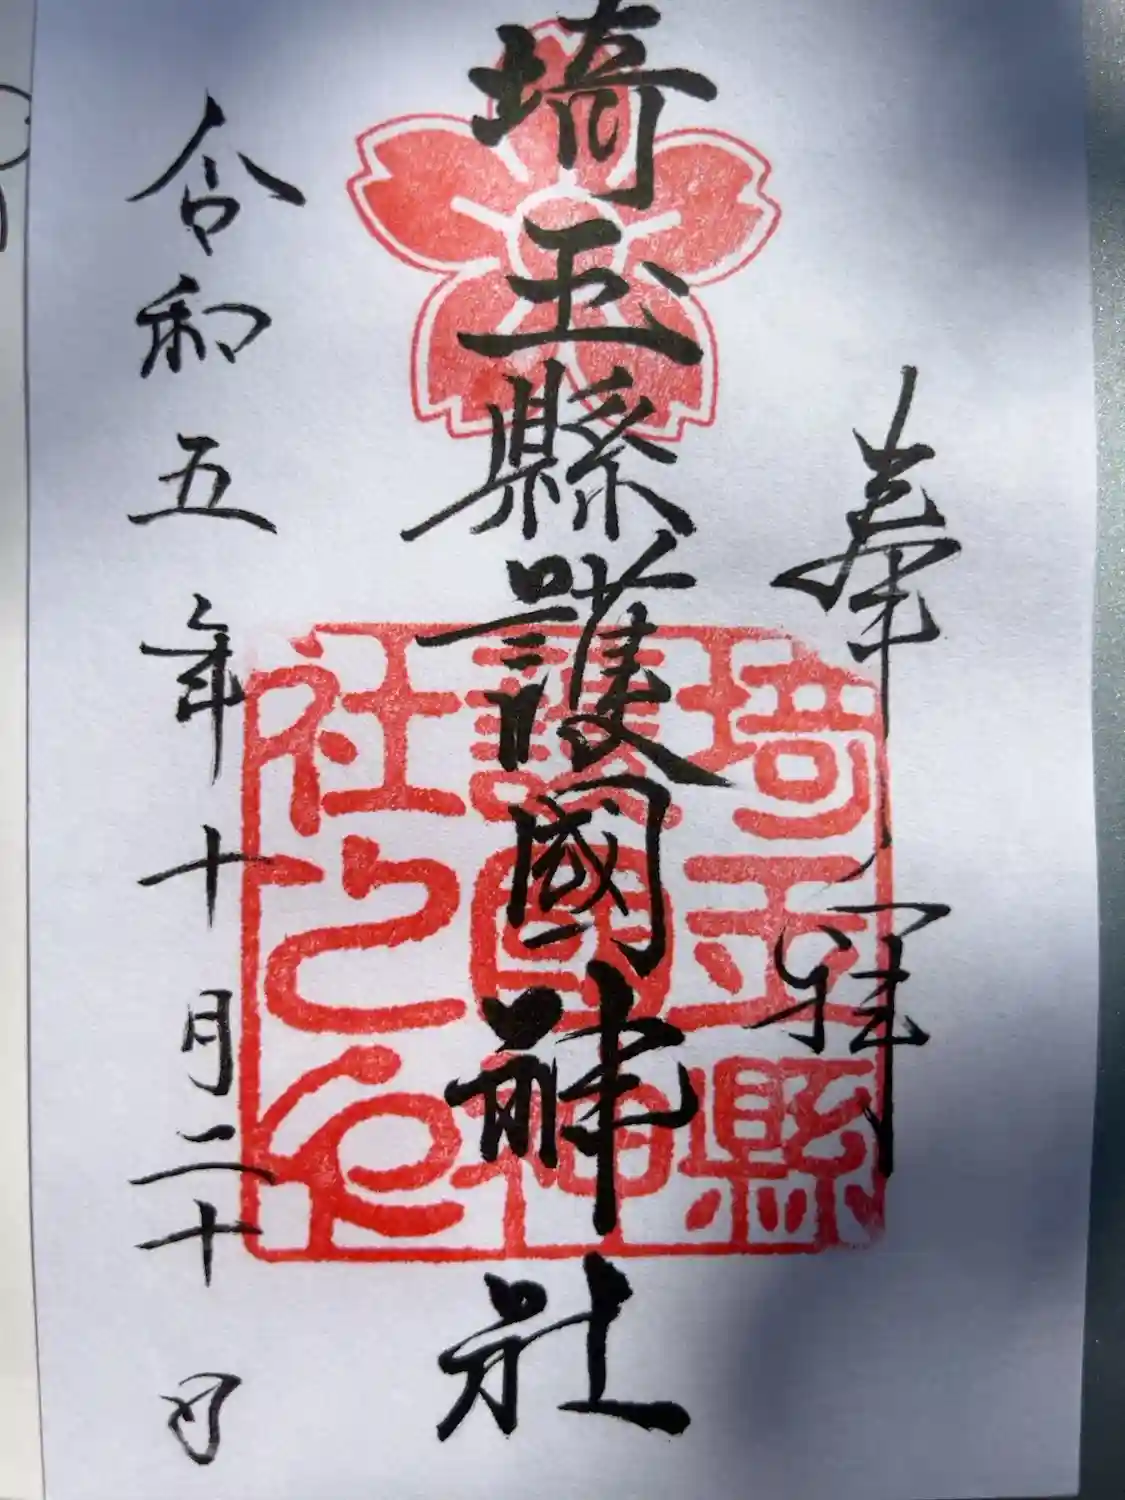 奉拝
埼玉縣護國神社
令和五年十月二十日
埼玉縣
護國神
社之印